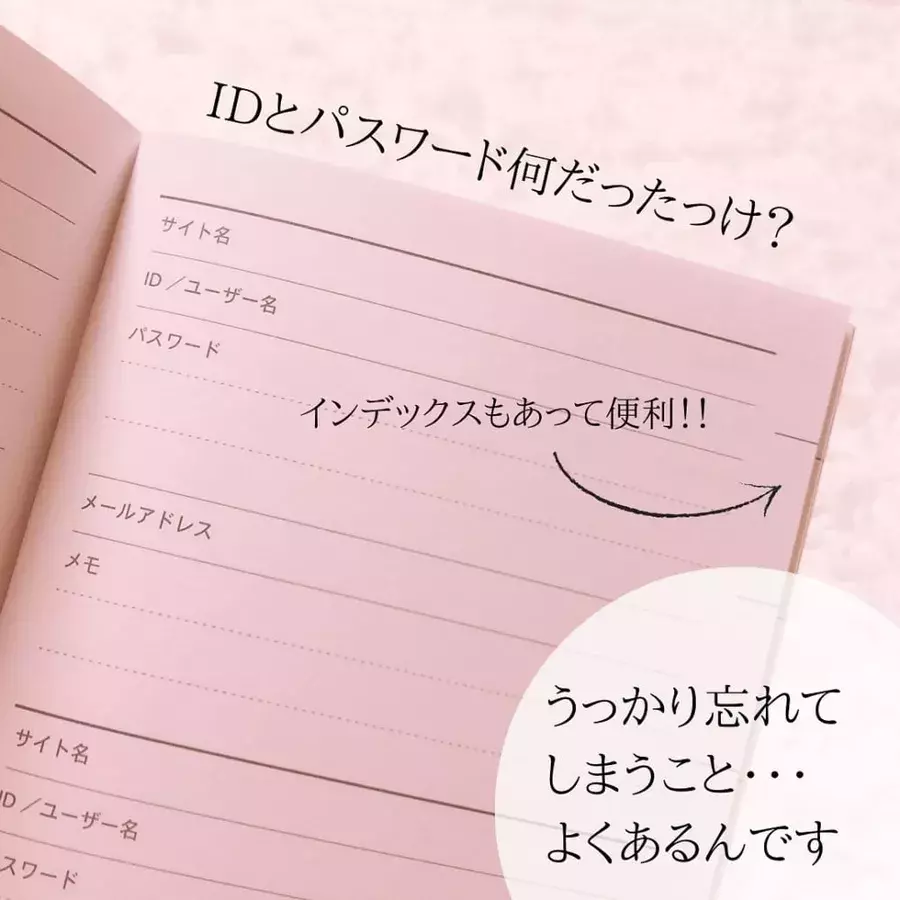 IDとパスワード何だったっけ?
サイト名
ID／ユーザー名
パスワード
インデックスもあって便利!!
メールアドレス
メモ
うっかり忘れて
しまうこと・・・
よくあるんです
サイト名
ID／ユーザー名
スワード